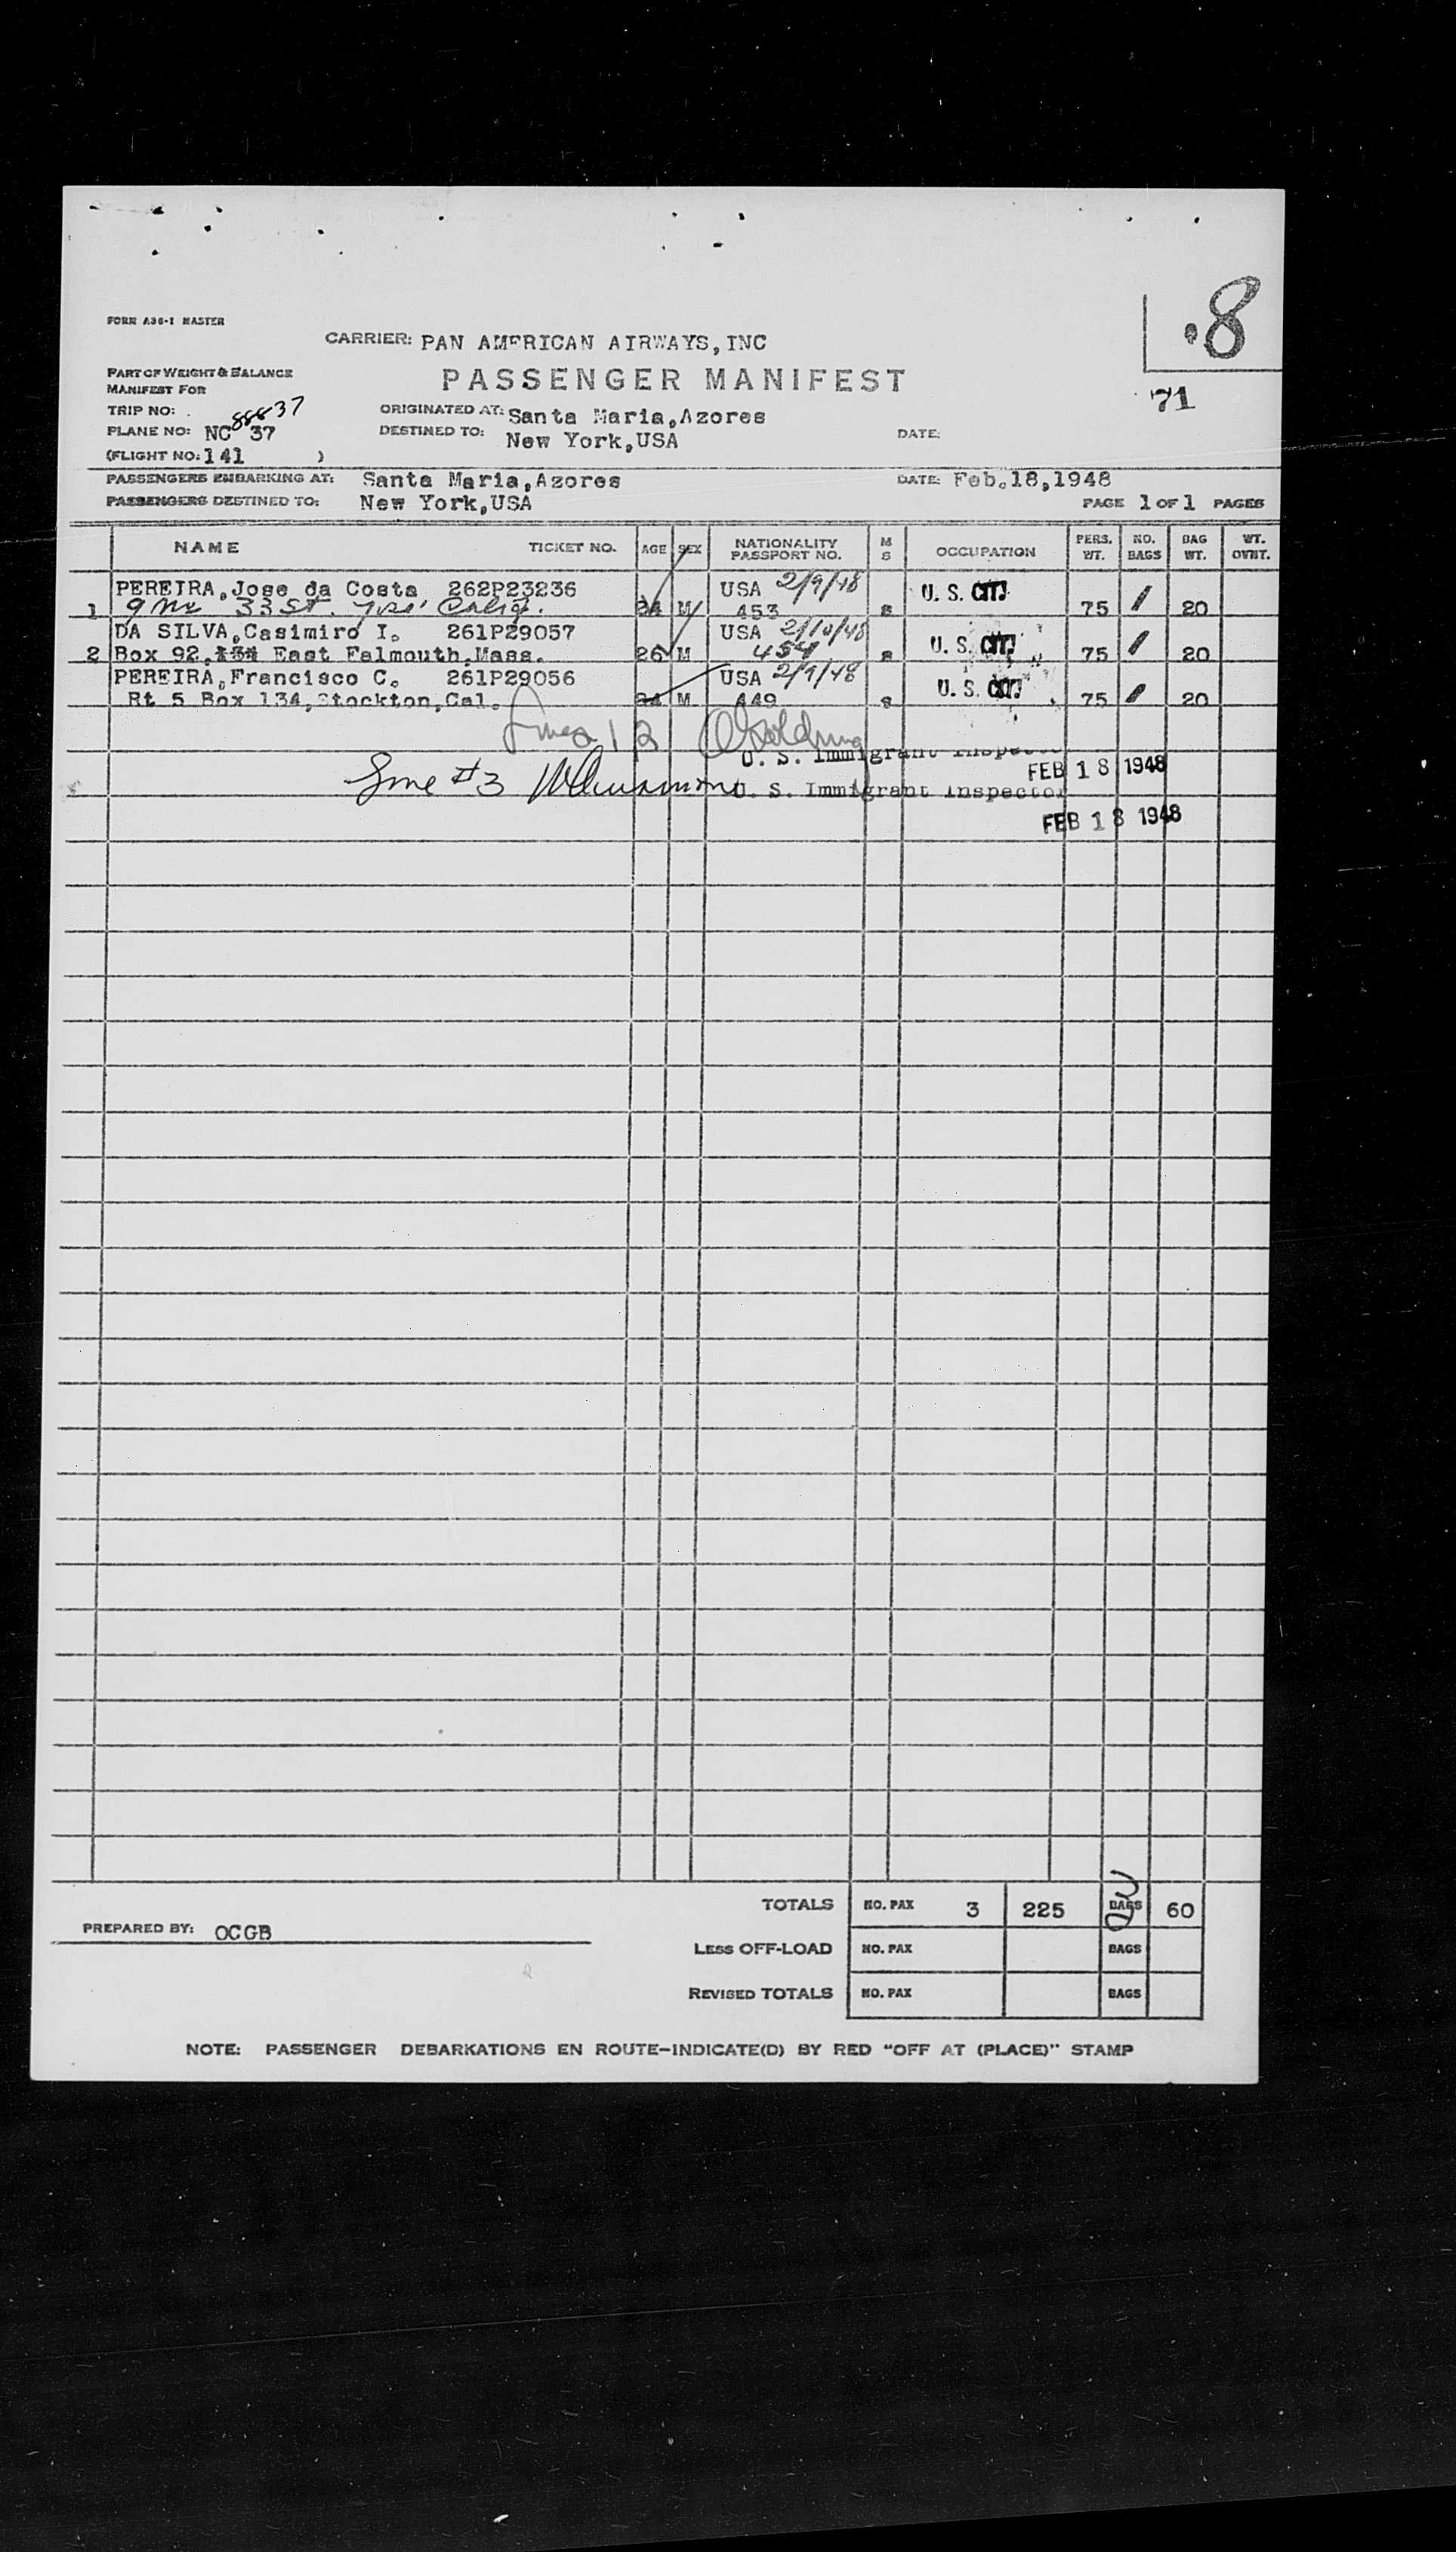 .8
71
FORM A36-1 MASTER
CARRIER: PAN AMERICAN AIRWAYS, INC
PART OF WEIGHT & BALANCE
MANIFEST FOR
PASSENGER MANIFEST
TRIP NO: .
PLANE NO: NC 88837 37
(FLIGHT NO: 141 )
ORIGINATED AT: Santa Maria, Azores
DESTINED TO: New York, USA
DATE:
PASSENGERS EMBARKING AT: Santa Maria, Azores DATE: Feb. 18, 1948
PASSENGERS DESTINED TO: New York, USA PAGE 1 OF 1 PAGES
NAME TICKET NO. AGE SEX NATIONALITY PASSPORT NO. M S OCCUPATION PERS. WT. NO. BAGS BAG WT. WT. OVWT.
PEREIRA, Jose da Costa 262P23236 USA 2/9/48 U. S. CIT.
1 33 St. M 453 s 75 1 20
DA SILVA, Casimiro I. 261P29057 USA 2/10/48 U. S. CIT.
2 Box 92, East Falmouth, Mass. 26 M 454 s 75 1 20
PEREIRA, Francisco C. 261P29056 USA 2/9/48 U. S. CIT.
Rt 5 Box 134, Stockton, Cal. M 449 s 75 1 20
Lines 1 2
U. S. Immigrant Inspector
FEB 18 1948
Line #3
U. S. Immigrant Inspector
FEB 18 1948
TOTALS NO. PAX 3 225 BAGS 60
PREPARED BY: OCGB
LESS OFF-LOAD NO. PAX BAGS
REVISED TOTALS NO. PAX BAGS
NOTE: PASSENGER DEBARKATIONS EN ROUTE-INDICATE(D) BY RED "OFF AT (PLACE)" STAMP